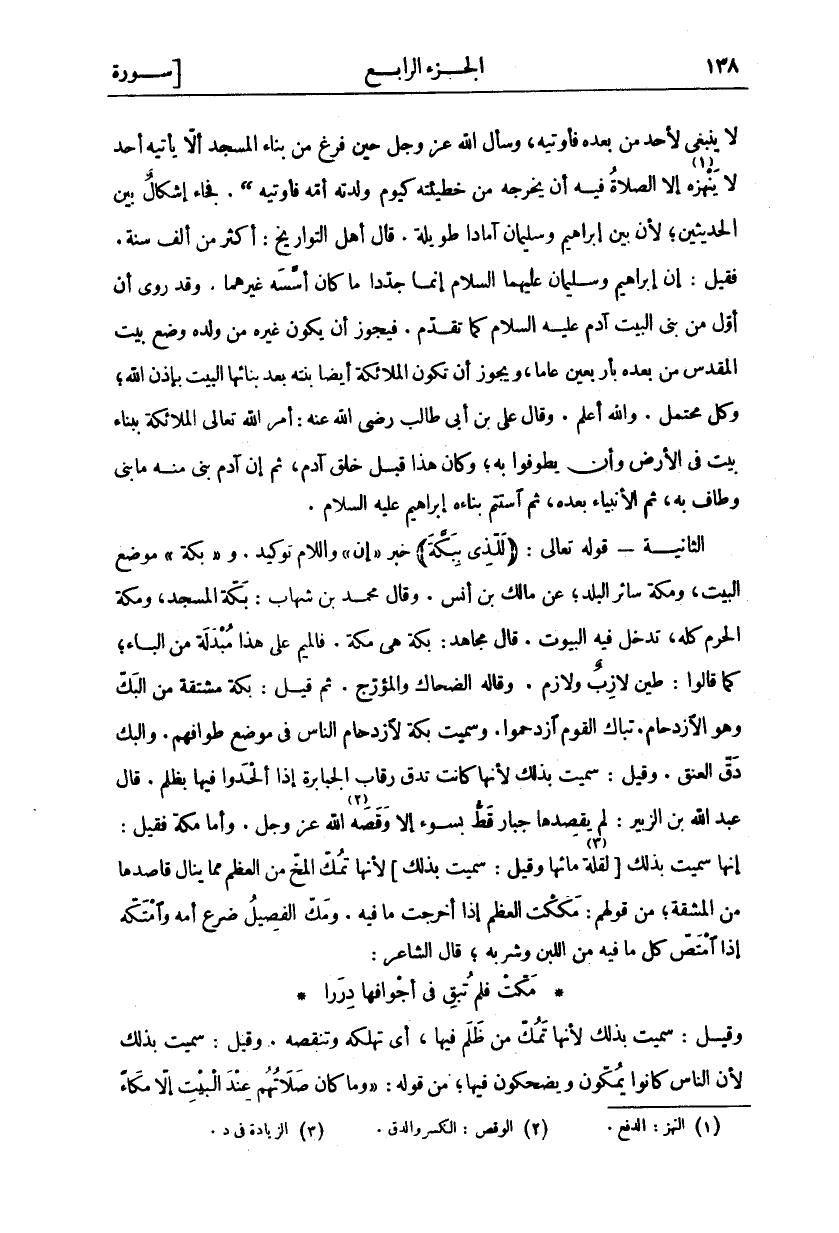 ١٣٨ الجزء الرابع [سورة
لا ينبغى لأحد من بعده فأوتيه، وسأل الله عز وجل حين فرغ من بناء المسجد ألّا يأتيه أحد
لا يَنْهزه (١) إلا الصلاةُ فيه أن يخرجه من خطيئته كيوم ولدته أمّه فأوتيه " . فجاء إشكالٌ بين
الحديثين؛ لأن بين إبراهيم وسليمان آمادا طويلة . قال أهل التواريخ : أكثر من ألف سنة .
فقيل : إن إبراهيم وسليمان عليهما السلام إنما جدّدا ما كان أسَّسَه غيرهما . وقد روى أن
أوّل من بنى البيت آدم عليه السلام كما تقدّم . فيجوز أن يكون غيره من ولده وضع بيت
المقدس من بعده بأربعين عاما، ويجوز أن تكون الملائكة أيضا بنته بعد بنائها البيت بإذن الله؛
وكل محتمل . والله أعلم . وقال على بن أبى طالب رضى الله عنه : أمر الله تعالى الملائكة ببناء
بيت فى الأرض وأن يطوفوا به؛ وكان هذا قبل خلق آدم، ثم إن آدم بنى منه ما بنى
وطاف به، ثم الأنبياء بعده، ثم ٱستتم بناءه إبراهيم عليه السلام .
الثانية — قوله تعالى : ﴿لَلَّذِى بِبَكَّةَ﴾ خبر «إن» واللام توكيد . و « بكة » موضع
البيت، ومكة سائر البلد؛ عن مالك بن أنس . وقال محمد بن شهاب : بَكّة المسجد، ومكة
الحرم كله، تدخل فيه البيوت . قال مجاهد: بكة هى مكة . فالميم على هذا مُبْدَلَة من الباء؛
كما قالوا : طين لازبٌ ولازم . وقاله الضحاك والمؤرّج . ثم قيل : بكة مشتقة من البَكّ
وهو الٱزدحام . تباك القوم ٱزدحموا. وسميت بكة لٱزدحام الناس فى موضع طوافهم . والبك
دَقّ العنق . وقيل : سميت بذلك لأنها كانت تدق رقاب الجبابرة إذا ألْحَدوا فيها بظلم . قال
عبد الله بن الزبير : لم يقصِدها جبار قَطُّ بسوء إلا وَقَصَه (٢) الله عز وجل . وأما مكة فقيل :
إنها سميت بذلك [ لقلة مائها وقيل : سميت بذلك ] (٣) لأنها تَمُكّ المخّ من العظم مما ينال قاصدها
من المشقة؛ من قولهم : مَكَكْت العظم إذا أخرجت ما فيه . ومَكّ الفصِيلُ ضرع أمه وٱمْتَكّه
إذا ٱمْتَصّ كل ما فيه من اللبن وشربه ؛ قال الشاعر :
* مَكّتْ فلم تُبقِ فى أجْوافها دِرَرا *
وقيل : سميت بذلك لأنها تَمُكّ من ظَلَم فيها ، أى تهلكه وتنقصه . وقيل : سميت بذلك
لأن الناس كانوا يُمكّون ويضحكون فيها؛ من قوله : «وما كان صَلَاتُهُم عِنْدَ الْبَيْتِ إلّا مكَاءً
(١) النهز : الدفع . (٢) الوقص : الكسر والدق . (٣) الزيادة فى د .